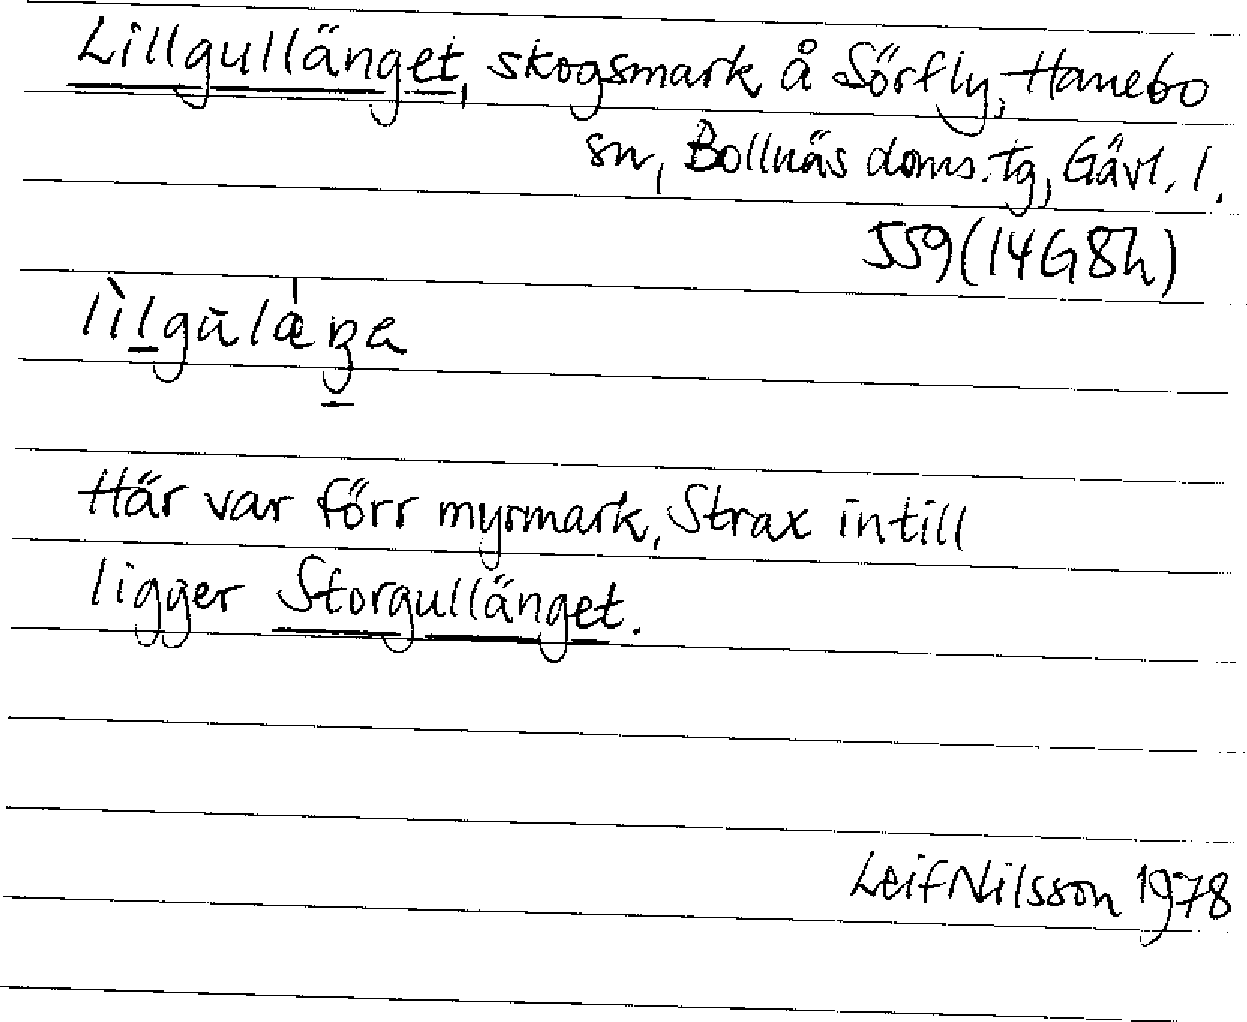 Lillgullänget, skogsmark å Sörfly, Hanebo
sn, Bollnäs doms.tg, Gävl. l.
559 (14G8h)
lìlgūlǽŋe
Här var förr myrmark, Strax intill
ligger Storgullänget.
Leif Nilsson 1978